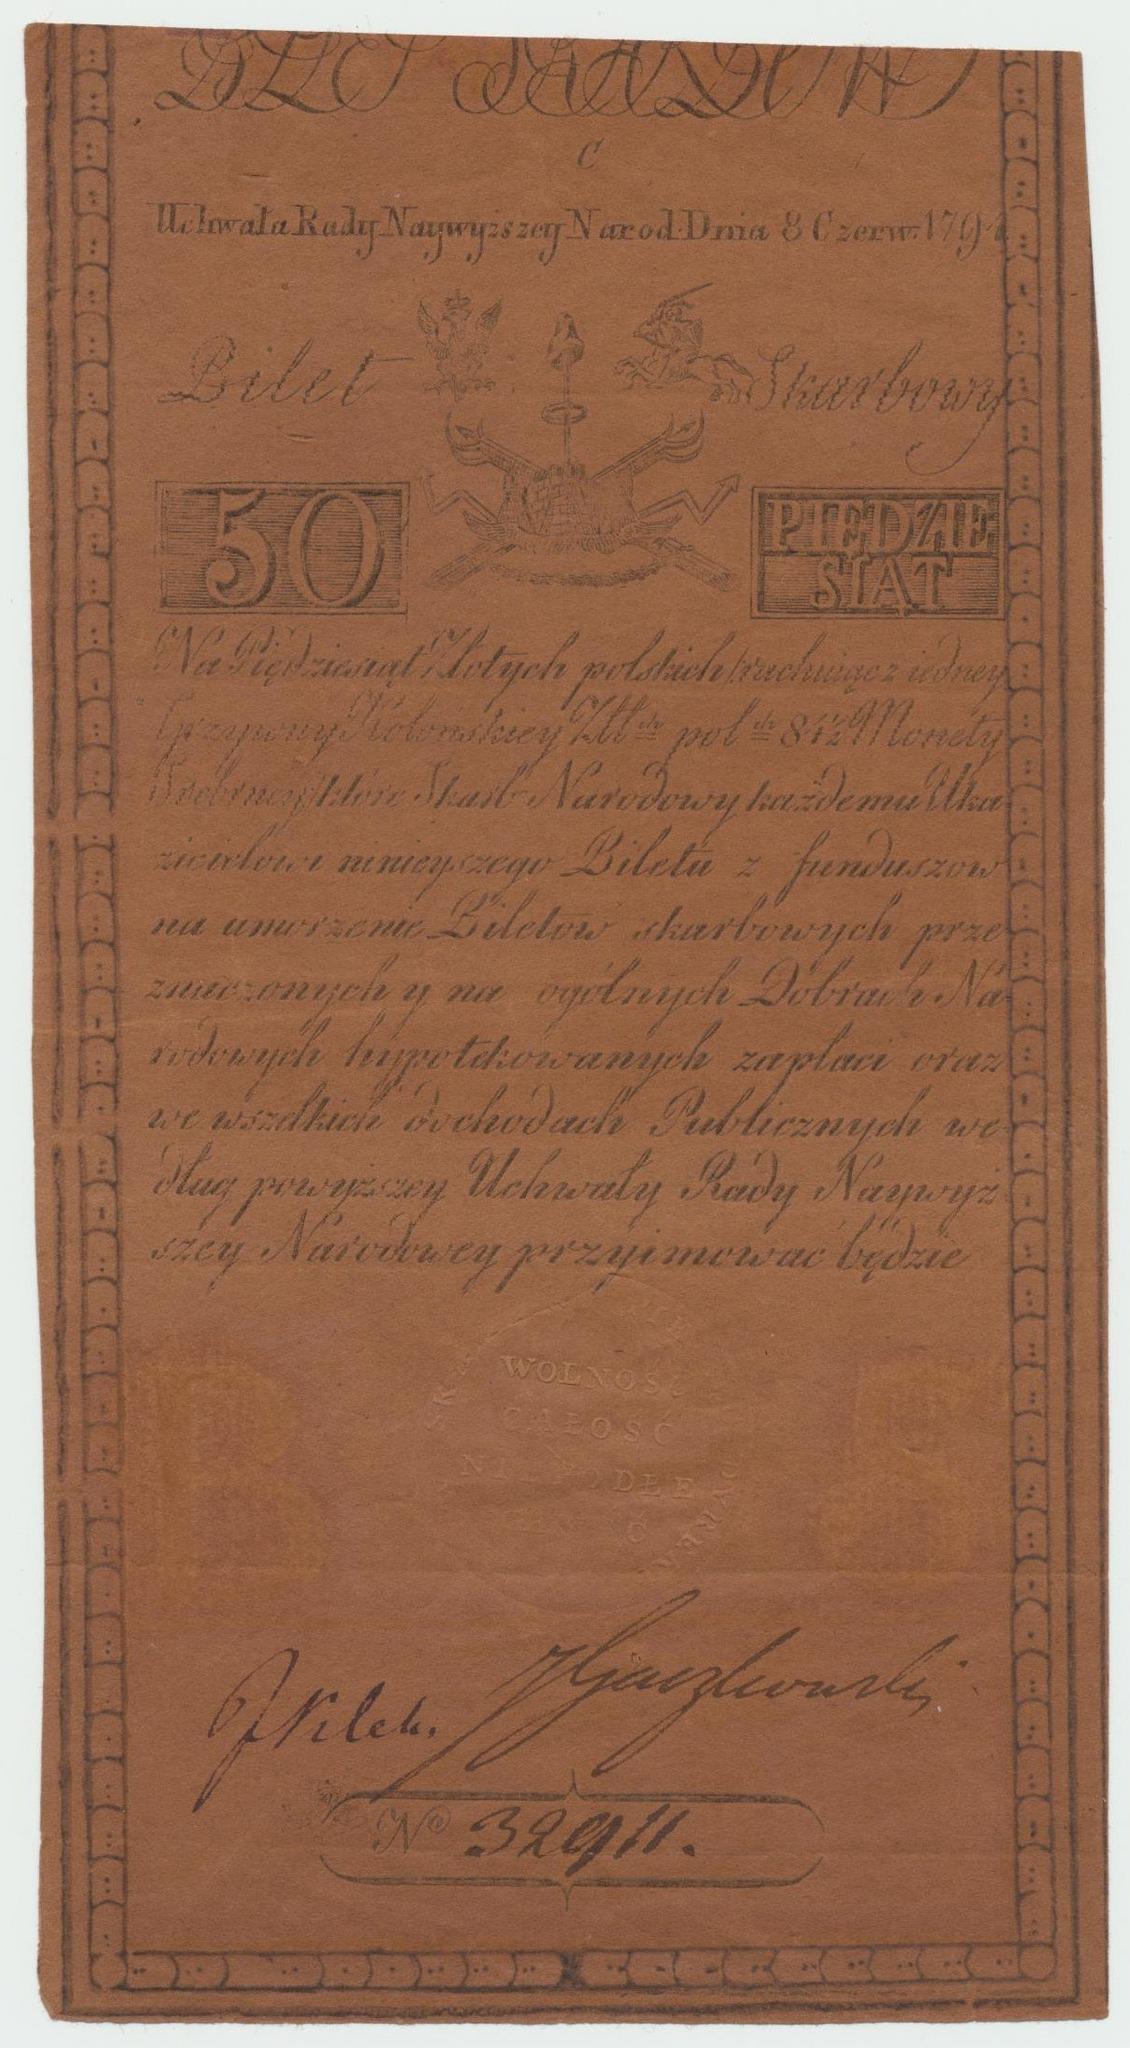 C
Uchwała Rady Naywyższey Narod. Dnia 8 Czerw. 1794
Bilet Skarbowy
50 PIEDZIE
SIĄT
Na Piędziesiąt Złotych polskich /rachuiąc z iedney
grzywny Kolońskiey Złł: pol: 84½ Monety
Srebrney/ które Skarb Narodowy każdemu Uka
zicielowi ninieyszego Biletu z funduszow
na umorzenie Biletow skarbowych prze
znaczonych y na ogólnych Dobrach Na
rodowych hypotekowanych zapłaci oraz
we wszelkich dochodach Publicznych we
dług powyższey Uchwały Rady Naywyż
szey Narodowey przyimować będzie
WOLNOŚĆ
CAŁOŚĆ
NIEPODLE
No 32911.